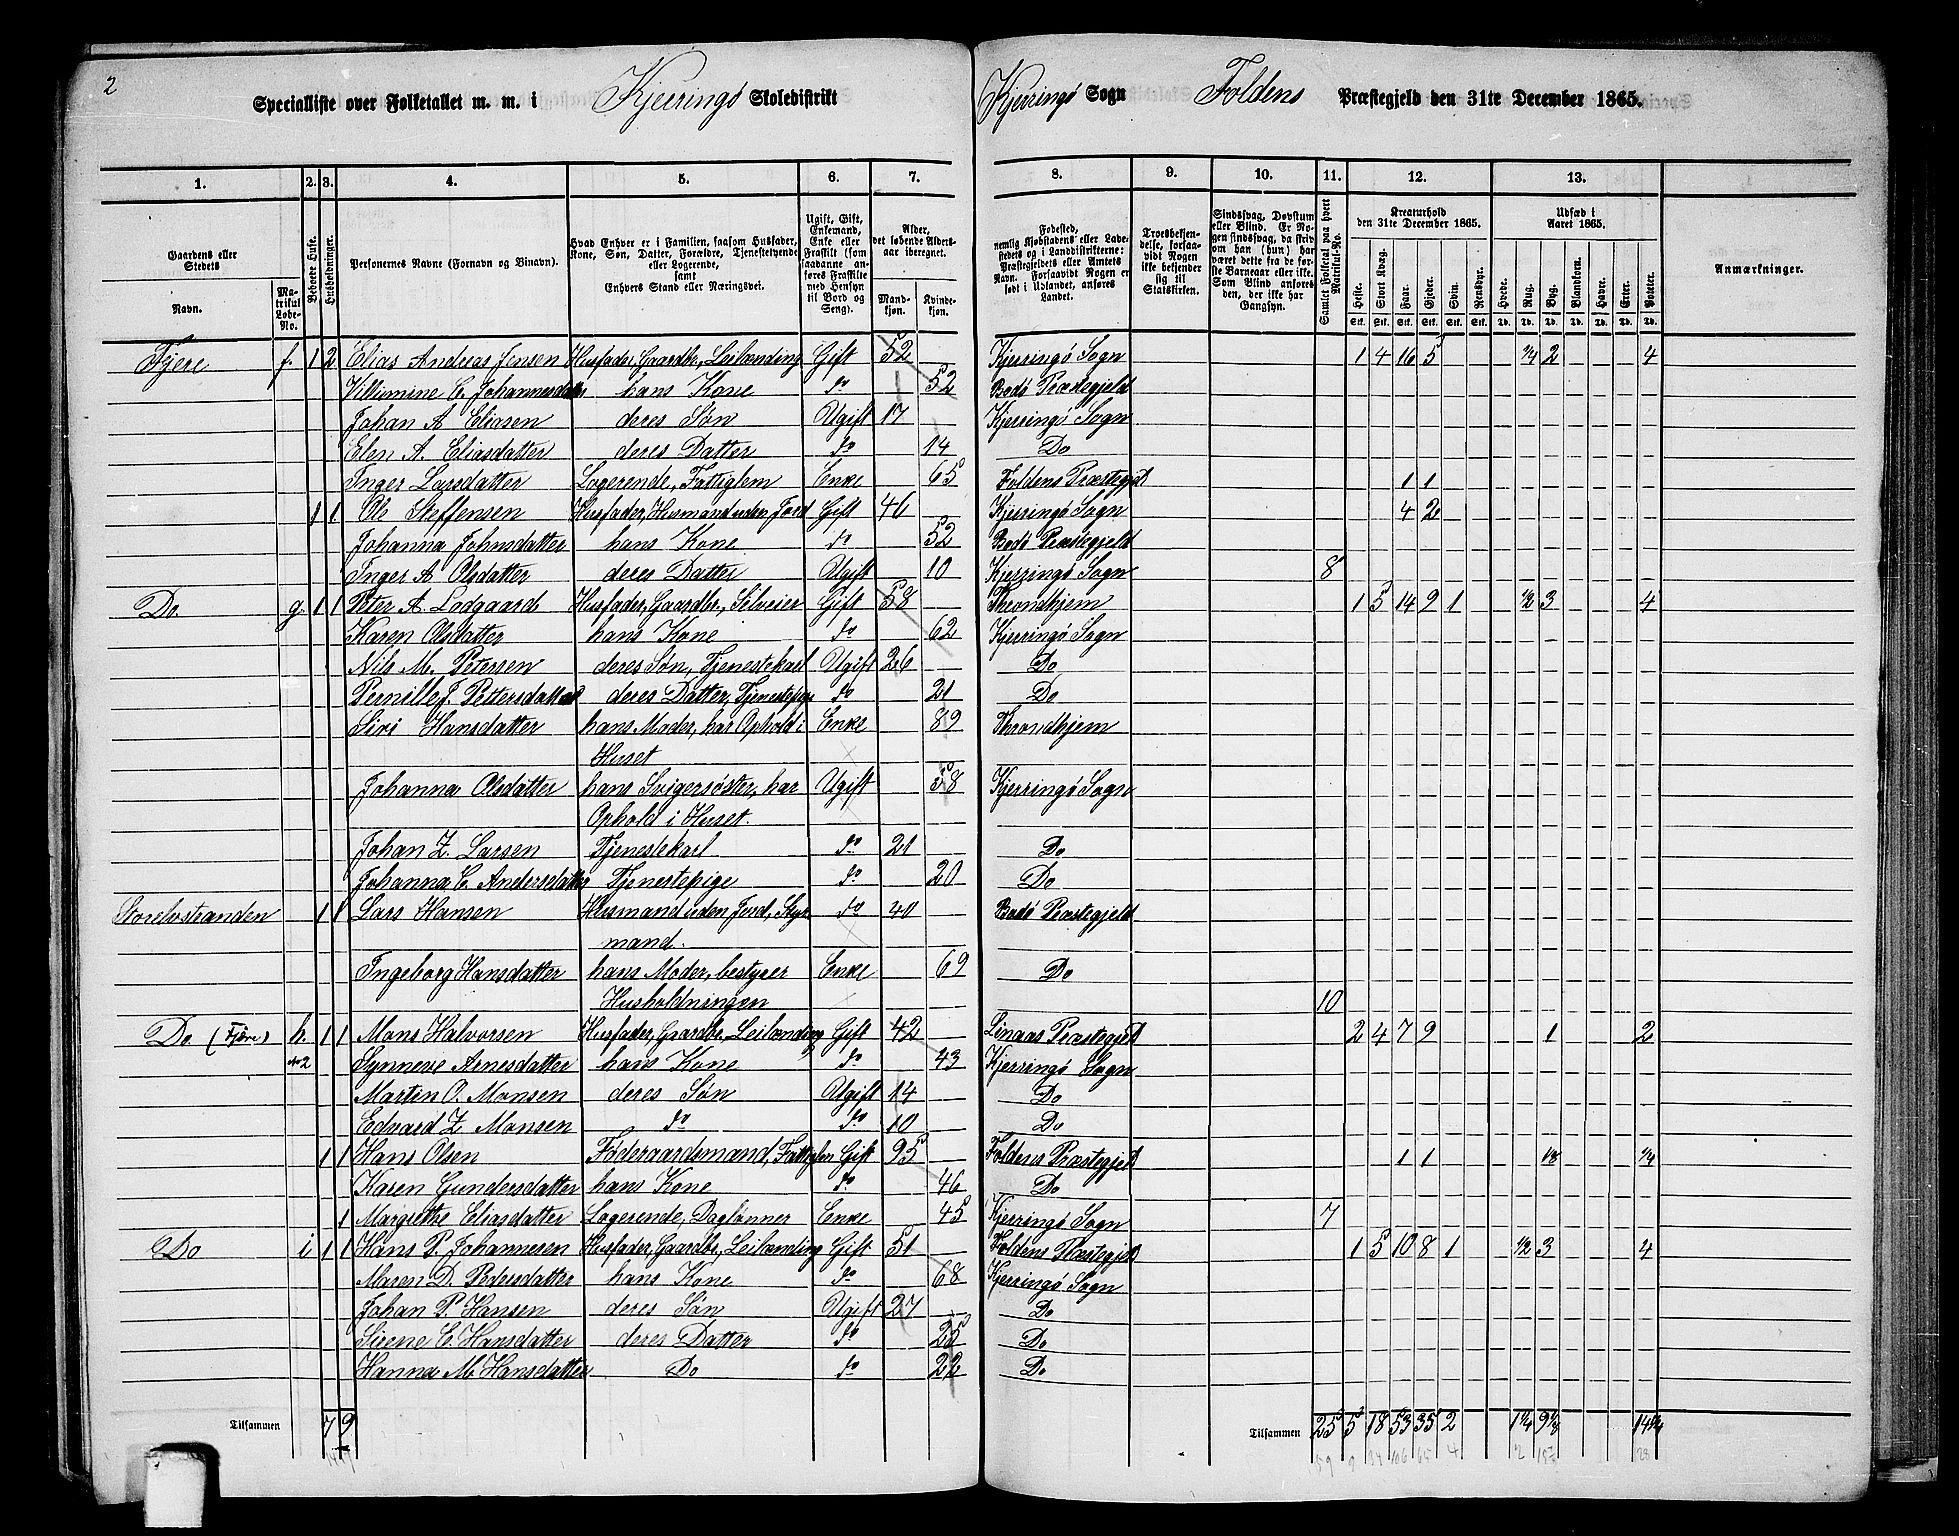 2
Specialliste over Folketallet m. m. i Kjerringø Skoledistrikt Kjerringø Sogn Foldens Præstegjeld den 31te December 1865.
1. 2. 3. 4. 5. 6. 7. 8. 9. 10. 11. 12. 13.
Gaardens eller Stedets
Navn. Matrikul Løbe-No.
Beboede Huse.
Husholdninger.
Personernes Navne (Fornavn og Binavn).
Hvad Enhver er i Familien, saasom Husfader, Kone, Søn, Datter, Forældre, Tjenestetyende eller Logerende, samt Enhvers Stand eller Næringsvei.
Ugift, Gift, Enkemand, Enke eller Fraskilt (som saadanne anføres Fraskilte med Hensyn til Bord og Seng).
Alder, det løbende Aldersaar iberegnet.
Mandkjøn. Kvindekjøn.
Fødested, nemlig Kjøbstadens eller Ladestedets og i Landdistrikterne: Præstegjeldets eller Amtets Navn. Forsaavidt Nogen er født i Udlandet, anføres Landet.
Troesbekjendelse, forsaavidt Nogen ikke bekjender sig til Statskirken.
Sindssvag, Døvstum eller Blind. Er Nogen sindssvag, da skriv om han (hun) har været det fra de første Barneaar eller ikke. Som Blind anføres den, der ikke har Gangsyn.
Samlet Folketal paa hvert Matrikul-No.
Kreaturhold den 31te December 1865.
Heste. Stort Kvæg. Faar. Gjeder. Svin. Rensdyr.
Udsæd i Aaret 1865.
Hvede. Rug. Byg. Blandkorn. Havre. Erter. Poteter.
Anmærkninger.
Fjere f. 1 2 Elias Andreas Jensen Husfader, Gaardbr., Leilænding Gift 52 Kjerringø Sogn 1 4 16 5 1/4 2 4
Villumine C. Johannesdatter hans Kone do 52 Bodø Præstegjeld
Johan A. Eliasen deres Søn Ugift 17 Kjerringø Sogn
Elen A. Eliasdatter deres Datter do 14 Do
Inger Larsdatter Logerende, Fattiglem Enke 65 Foldens Præstegjeld 1 1
1 1 Ole Steffensen Husfader, Husmand uden Jord Gift 46 Kjerringø Sogn 4 2
Johanna Johnsdatter hans Kone do 52 Bodø Præstegjeld
Inger A. Olsdatter deres Datter Ugift 10 Kjerringø Sogn 8
Do g. 1 1 Peter A. Lodgaard Husfader, Gaardbr., Selveier Gift 58 Throndhjem 1 5 14 9 1 1/2 3 4
Karen Olsdatter hans Kone do 62 Kjerringø Sogn
Nils M. Petersen deres Søn, Tjenestekarl Ugift 26 Do
Pernille J. Pettersdatter deres Datter, Tjenestepige do 21 Do
Siri Hansdatter hans Moder, har Ophold i Enke 89 Throndhjem
Huset
Johanna Olsdatter hans Svigersøster, har Ugift 58 Kjerringø Sogn
Ophold i Huset.
Johan Z. Larsen Tjenestekarl do 21 Do
Johanna C. Andersdatter Tjenestepige do 20 Do
Storelvstranden 1 1 Lars Hansen Husmand uden Jord, Styr- do 40 Bodø Præstegjeld
mand.
Ingeborg Hansdatter hans Moder, bestyrer Enke 69 Do
Husholdningen 10
Do (Fjære) h. 1 1 Mons Halvorsen Husfader, Gaardbr., Leilænding Gift 42 Lenaas Præstegjeld 2 4 7 9 1 2
Synneve Arnesdatter hans Kone do 43 Kjerringø Sogn
Martin O. Monsen deres Søn Ugift 14 Do
Edvard Z. Monsen do do 10 Do
1 1 Hans Olsen Føderaadsmand, Fattiglem Gift 95 Foldens Præstegjeld 1 1 1/8 1/4
Karen Gundersdatter hans Kone do 46 Do
1 Margrethe Eliasdatter Logerende, Daglønner Enke 45 Kjerringø Sogn 7
Do i 1 1 Hans P. Johannesen Husfader, Gaardbr., Leilænding Gift 51 Foldens Præstegjeld 1 5 10 8 1 1/2 3 4
Maren D. Pedersdatter hans Kone do 68 Kjerringø Sogn
Johan P. Hansen deres Søn Ugift 27 Do
Sirene C. Hansdatter deres Datter do 25 Do
Hanna M. Hansdatter Do do 22 Do
Tilsammen 7 9 Tilsammen 25 5 18 53 35 2 1 1/4 9 1/8 14 1/4